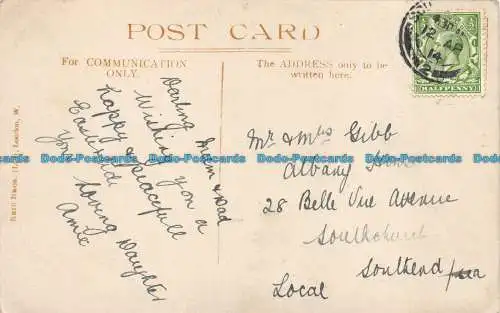 POST CARD
For COMMUNICATION
ONLY.
The ADDRESS only to be
written here.
HALFPENNY
12 AP
14
Darling Mum & Dad
Wishing you a
happy & peacefull
Eastertide
your loving Daughter
Mr & Mrs Gibb
Albany
28 Belle Vue Avenue
Southchurch
Southend
Local
London, W.
Dodo-Postcards Dodo-Postcards Dodo-Postcards Dodo-Postcards